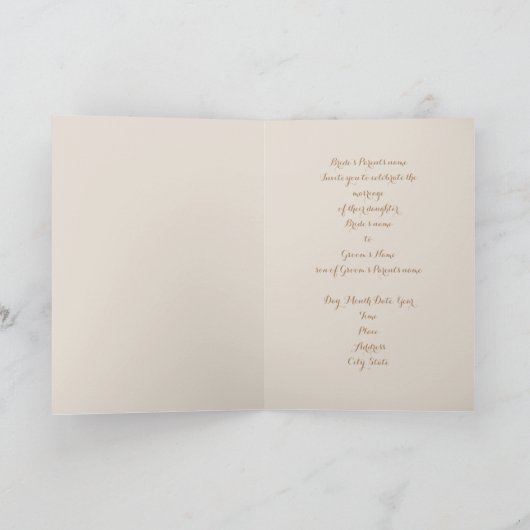 Bride's Parents name
Invite you to celebrate the
marriage
of their daughter
Bride's name
to
Groom's Name
son of Groom's Parents name
Day, Month Date, Year
Time
Place
Address
City, State